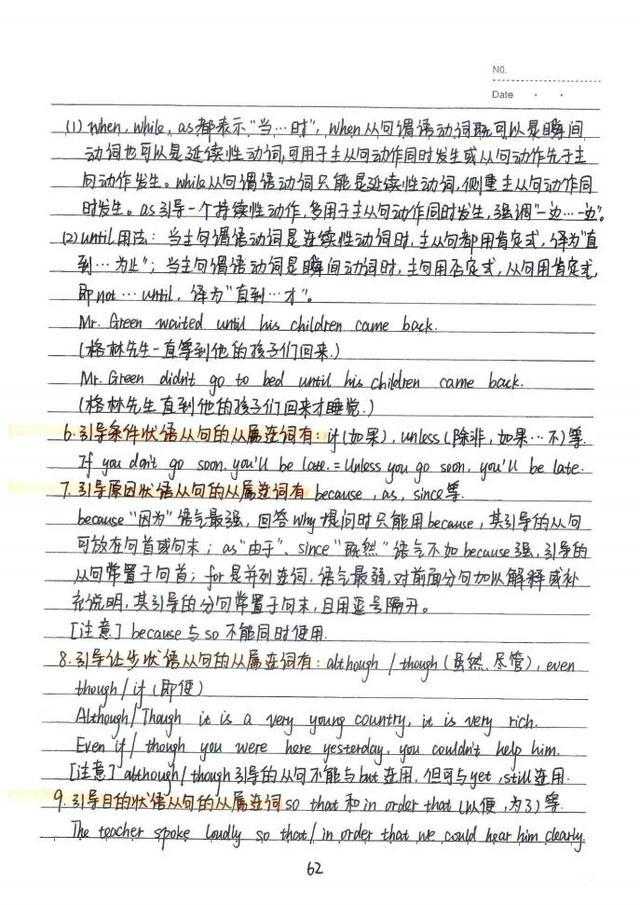 NO.
Date
(1) when, while, as都表示“当…时”, when从句谓语动词既可以是瞬间
动词也可以是延续性动词,可用于主从句动作同时发生或从句动作先于主
句动作发生。while从句谓语动词只能是延续性动词,侧重主从句动作同
时发生。as引导一个持续性动作,多用于主从句动作同时发生,强调“一边…一边”。
(2) until用法:当主句谓语动词是延续性动词时,主从句都用肯定式,译为“直
到…为止”;当主句谓语动词是瞬间动词时,主句用否定式,从句用肯定式,
即not…until,译为“直到…才”。
Mr. Green waited until his children came back.
(格林先生一直等到他的孩子们回来.)
Mr. Green didn't go to bed until his children came back.
(格林先生直到他的孩子们回来才睡觉.)
6.引导条件状语从句的从属连词有:if(如果), unless(除非,如果…不)等.
If you don't go soon, you'll be late.=Unless you go soon, you'll be late.
7.引导原因状语从句的从属连词有 because, as, since等.
because“因为”语气最强,回答why提问时只能用because,其引导的从句
可放在句首或句末;as“由于”、since“既然”语气不如because强,引导的
从句常置于句首;for是并列连词,语气最弱,对前面分句加以解释或补
充说明,其引导的分句常置于句末,且用逗号隔开。
[注意] because与so不能同时使用.
8.引导让步状语从句的从属连词有:although / though(虽然,尽管), even
though / if (即使)
Although/Though it is a very young country, it is very rich.
Even if / though you were here yesterday, you couldn't help him.
[注意] although/though引导的从句不能与but连用,但可与yet, still连用.
9.引导目的状语从句的从属连词 so that 和 in order that (以便,为了)等.
The teacher spoke loudly so that / in order that we could hear him clearly.
62